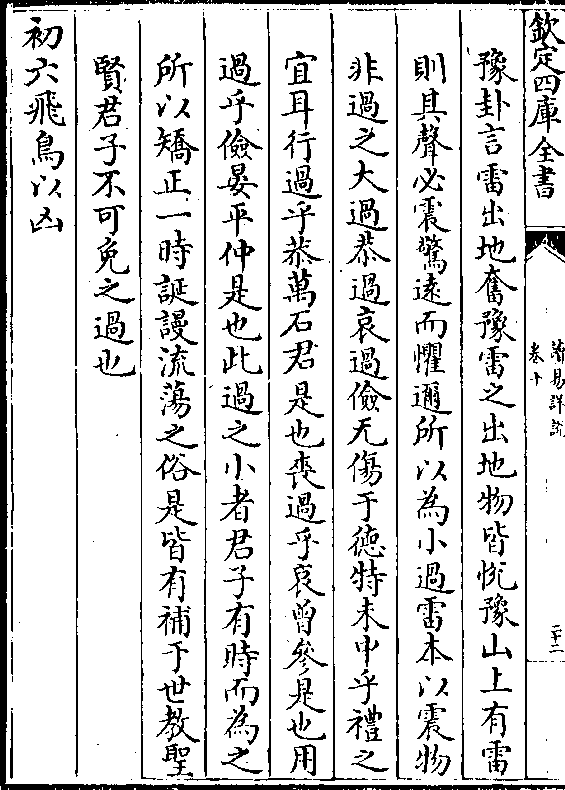 欽定四庫全書
讀易詳說
卷十
二十二
豫卦言雷出地奮豫雷之出地物皆悅豫山上有雷
則其聲必震驚遠而懼邇所以為小過雷本以震物
非過之大過恭過哀過儉无傷于德特未中乎禮之
宜耳行過乎恭萬石君是也喪過乎哀曾參是也用
過乎儉晏平仲是也此過之小者君子有時而為之
所以矯正一時誕謾流蕩之俗是皆有補于世教聖
賢君子不可免之過也
初六飛鳥以凶